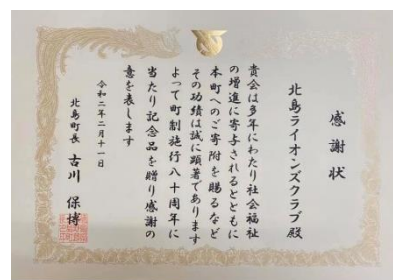 感謝状
北島ライオンズクラブ殿
貴会は多年にわたり社会福祉
の増進に寄与されるとともに
本町へのご寄附を賜るなど
その功績は誠に顕著であります
よって町制施行八十周年に
当たり記念品を贈り感謝の
意を表します
令和二年二月十一日
北島町長 古川 保博